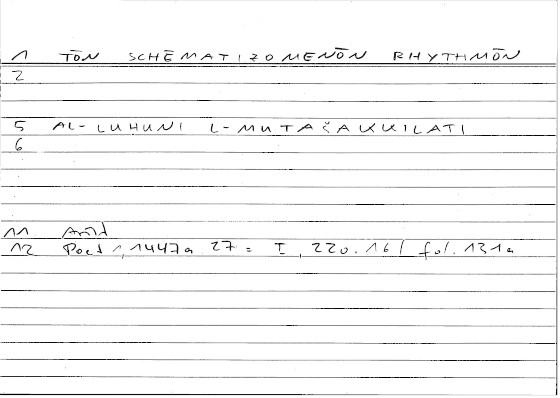 1 TŌN SCHĒMATIZOMENŌN RHYTHMŌN
2
5 AL-LUHUNI L-MUTAŠAKKILATI
6
11 Arist
12 Poet 1, 1447a 27 = I, 220.16 / fol. 131a